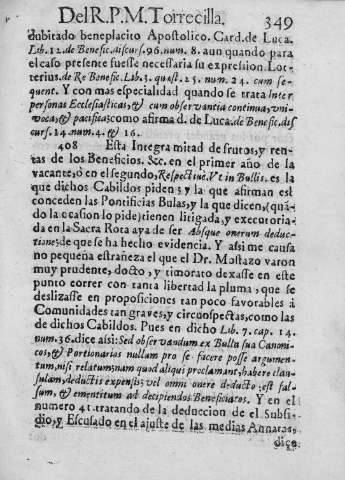 Del R. P. M. Torrecilla. 349
dubitado beneplacito Apostolico. Card. de Luca.
Lib. 12. de Benefic. discurs. 96. num. 8. aun quando para
el caso presente fuesse necessaria su expression. Lot-
terius. de Re Benefic. Lib. 3. quæst. 25. num. 24. cum se-
quent. Y con mas especialidad quando se trata Inter
personas Ecclesiasticas, & cum observantia continua, uni-
voca, & pacifica; como afirma d. de Luca. de Benefic. dis-
curs. 14. num. 4. & 16.
408 Esta Integra mitad de frutos, y ren-
tas de los Beneficios. &c. en el primer año de la
vacante, ò en el segundo, Respectivè. Vt in Bullis. es la
que dichos Cabildos piden; y la que afirman est
conceden las Pontificias Bulas, y la que dicen, (quã-
do la ocasion lo pide) tienen litigada, y executoria-
da en la Sacra Rota aya de ser Absque onerum deduc-
tione; de que se ha hecho evidencia. Y assi me causa
no pequeña estrañeza el que el Dr. Mostazo varon
muy prudente, docto, y timorato dexasse en este
punto correr con tanta libertad la pluma, que se
deslizasse en proposiciones tan poco favorables à
Comunidades tan graves, y circunspectas, como las
de dichos Cabildos. Pues en dicho Lib. 7. cap. 14.
num. 36. dice aisi: Sed observandum ex Bulla sua Canoni-
cos, & Portionarios nullum pro se facere posse argumen-
tum, nisi relatum; nam quod aliqui proclamant, habere clau-
sulam, deductis expensis, vel omni onere deducto, est fal-
sum, & ementitum ad decipiendos Beneficiatos. Y en el
numero 41. tratando de la deduccion de el Subsi-
dio, y Escusado en el ajuste de las medias Annatas,
dice